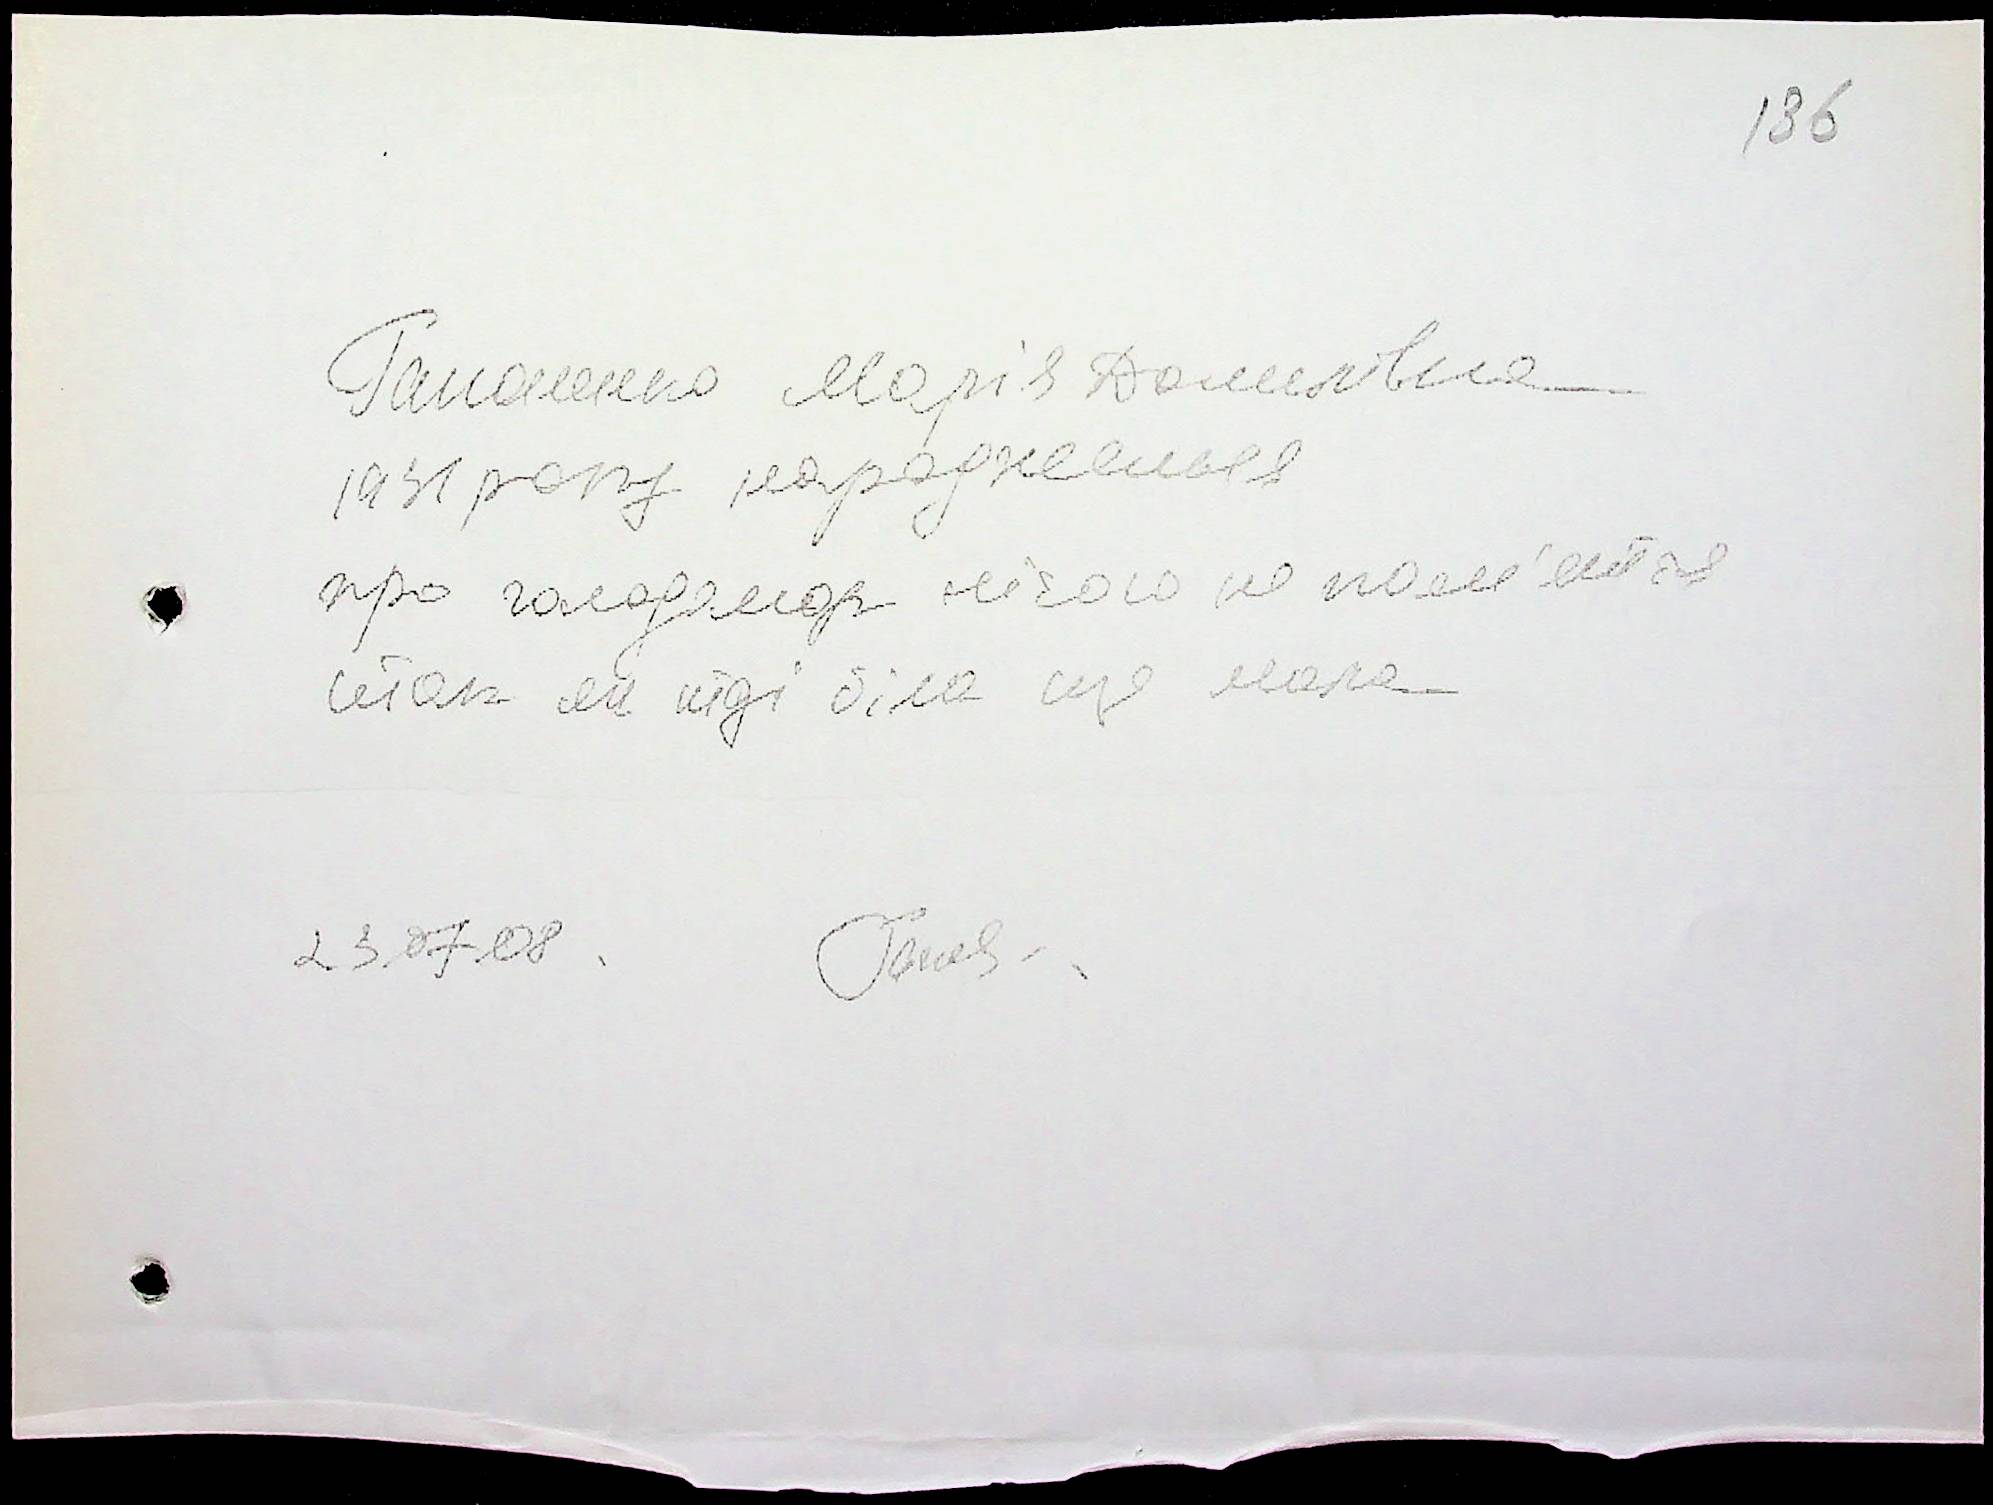 136
Гапоненко Марія Домиківна
1931 року народження
про голодомор нічого не пам'ятає
так як тоді біла ще мала
23 07 08.